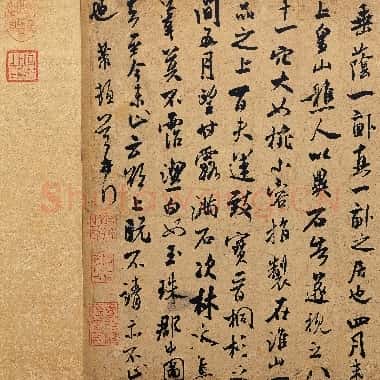 垂蔭一畝真一畝之居也四月末
上皇山樵人以異石告遂視之八
十一穴大如椀小容指製在淮山一
品之上百夫運致寶晉桐杉之
間五月望甘露滿石次林木焦
葦莫不霑潔白如玉珠郡中圖
去至今未止云欲上既不請亦不止
也芾頓首再拜